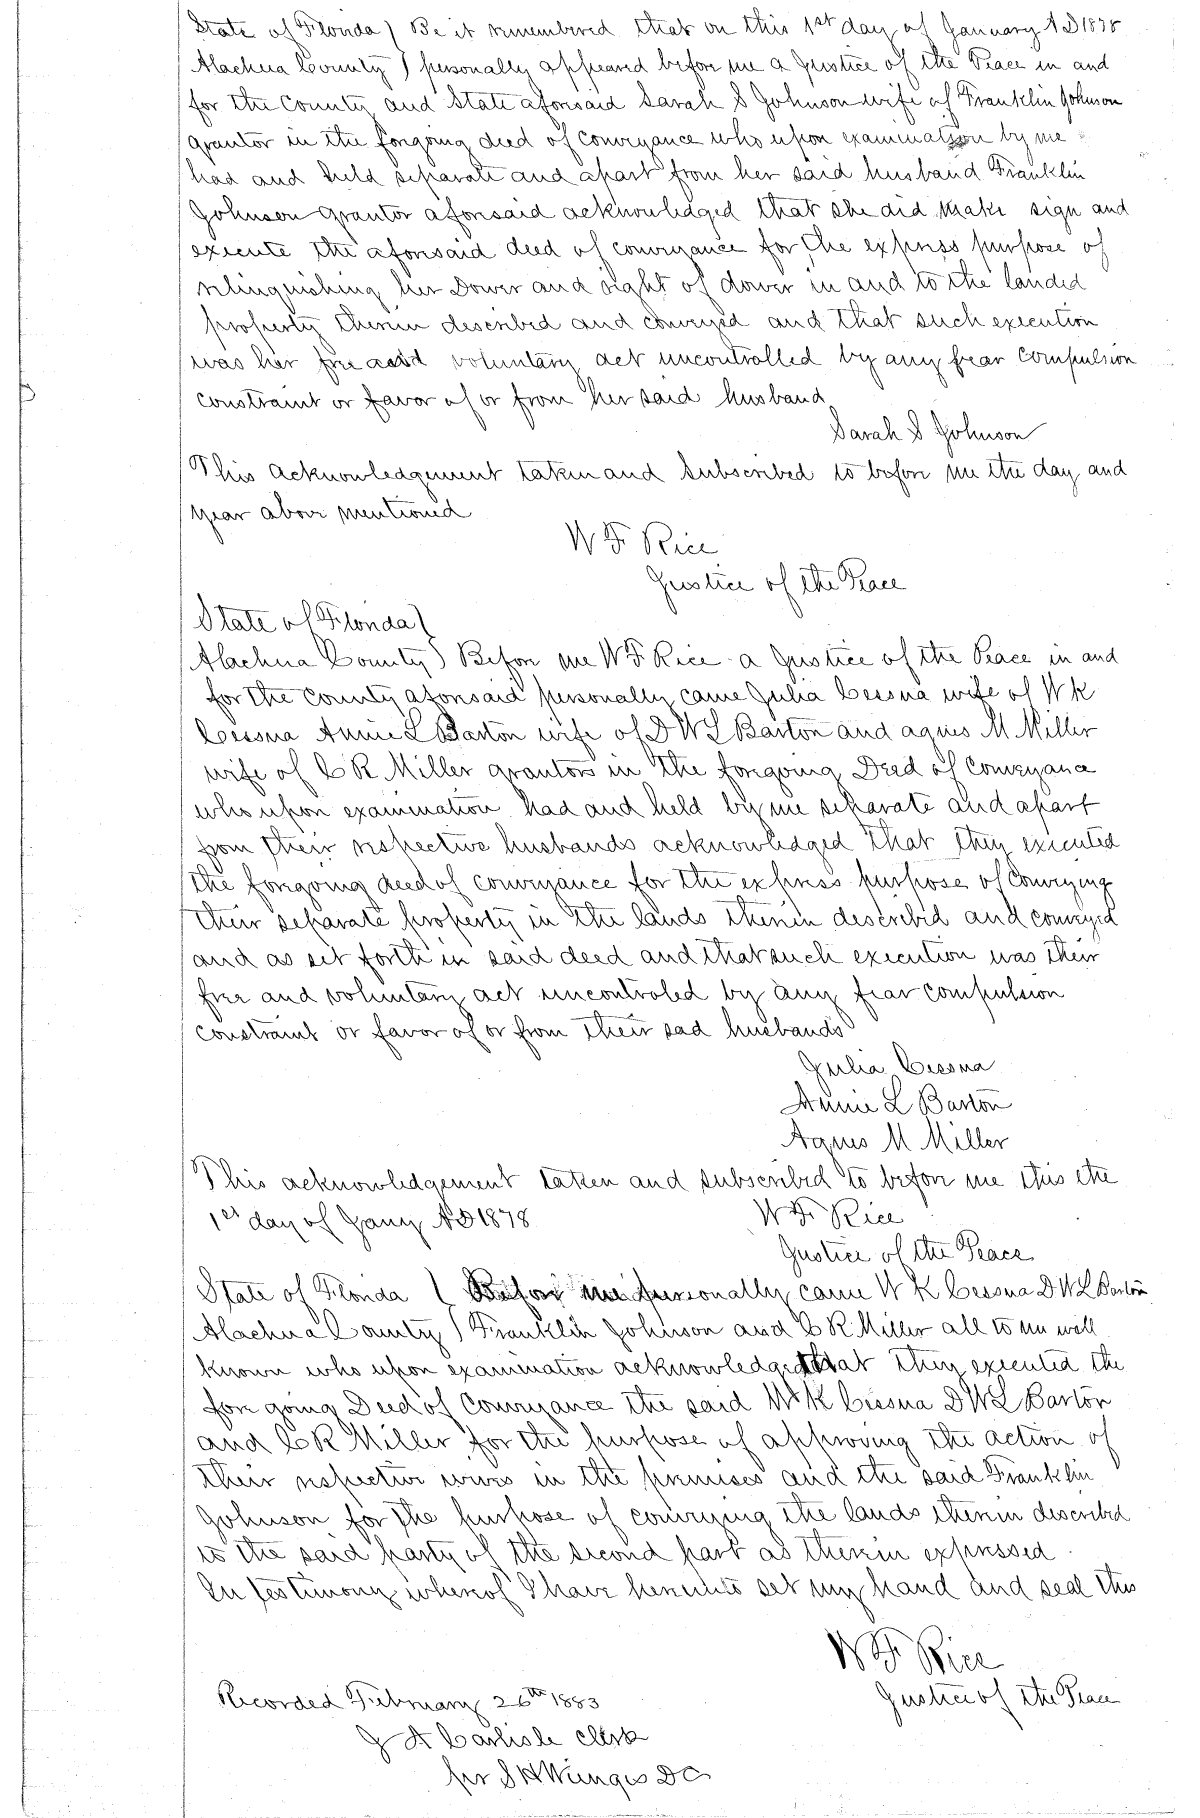 State of Florida ) Be it remembered that on this 1st day of January A D 1878
Alachua County ) personally appeared before me a Justice of the Peace in and
for the County and State aforesaid Sarah S Johnson wife of Franklin Johnson
grantor in the forgoing deed of conveyance who upon examination by me
had and held separate and apart from her said husband Franklin
Johnson grantor aforesaid acknowledged that she did make sign and
execute the aforesaid deed of conveyance for the express purpose of
relinquishing her Dower and right of dower in and to the landed
property therein described and conveyed and that such execution
was her free and voluntary act uncontrolled by any fear compulsion
constraint or favor of or from her said husband
Sarah S Johnson
This acknowledgement taken and subscribed to before me the day and
year above mentioned
W F Rice
Justice of the Peace
State of Florida )
Alachua County ) Before me W F Rice a Justice of the Peace in and
for the County aforesaid personally came Julia Cessna wife of W K
Cessna Annie L Barton wife of D W L Barton and agnes M Miller
wife of C R Miller grantors in the forgoing Deed of Conveyance
who upon examination had and held by me separate and apart
from their respective husbands acknowledged that they executed
the foregoing deed of conveyance for the express purpose of Conveying
their separate property in the lands therein described and conveyed
and as set forth in said deed and that such execution was their
free and voluntary act uncontroled by any fear compulsion
constraint or favor of or from their sad husbands
Julia Cessna
Annie L Barton
Agnes M Miller
This acknowledgement taken and subscribed to before me this the
1st day of Jany A D 1878 W F Rice
Justice of the Peace
State of Florida ( Before me personally came W K Cessna D W L Barton
Alachua County ) Franklin Johnson and C R Miller all to me well
known who upon examination acknowledged that they executed the
fore going Deed of Conveyance the said W K Cessna D W L Barton
and C R Miller for the purpose of approving the action of
their respective wives in the premises and the said Franklin
Johnson for the purpose of conveying the lands therein described
to the said party of the second part as therein expressed
In testimony whereof I have hereunto set my hand and seal this
W F Rice
Justice of the Peace
Recorded February 26th 1883
J A Carlisle Clerk
per S H Wienges D C